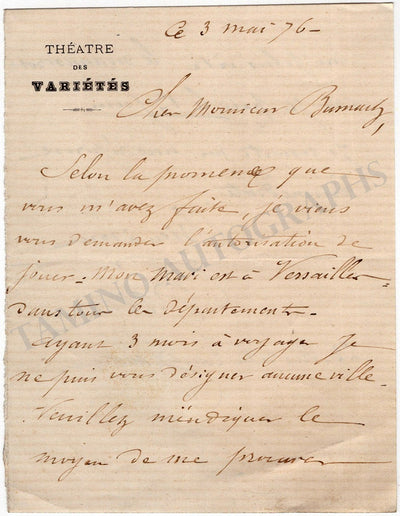 Ce 3 mai 76 -
THÉATRE
DES
VARIÉTÉS
Cher Monsieur
Selon la promesse que
vous m'avez faite, je viens
vous demander l'autorisation de
jouer - Mon Mari est à Versailles -
dans tous les départements -
Ayant 3 mois à voyager je
ne puis vous désigner aucune ville -
Veuillez m'indiquer le
moyen de me procurer
TAMINO AUTOGRAPHS